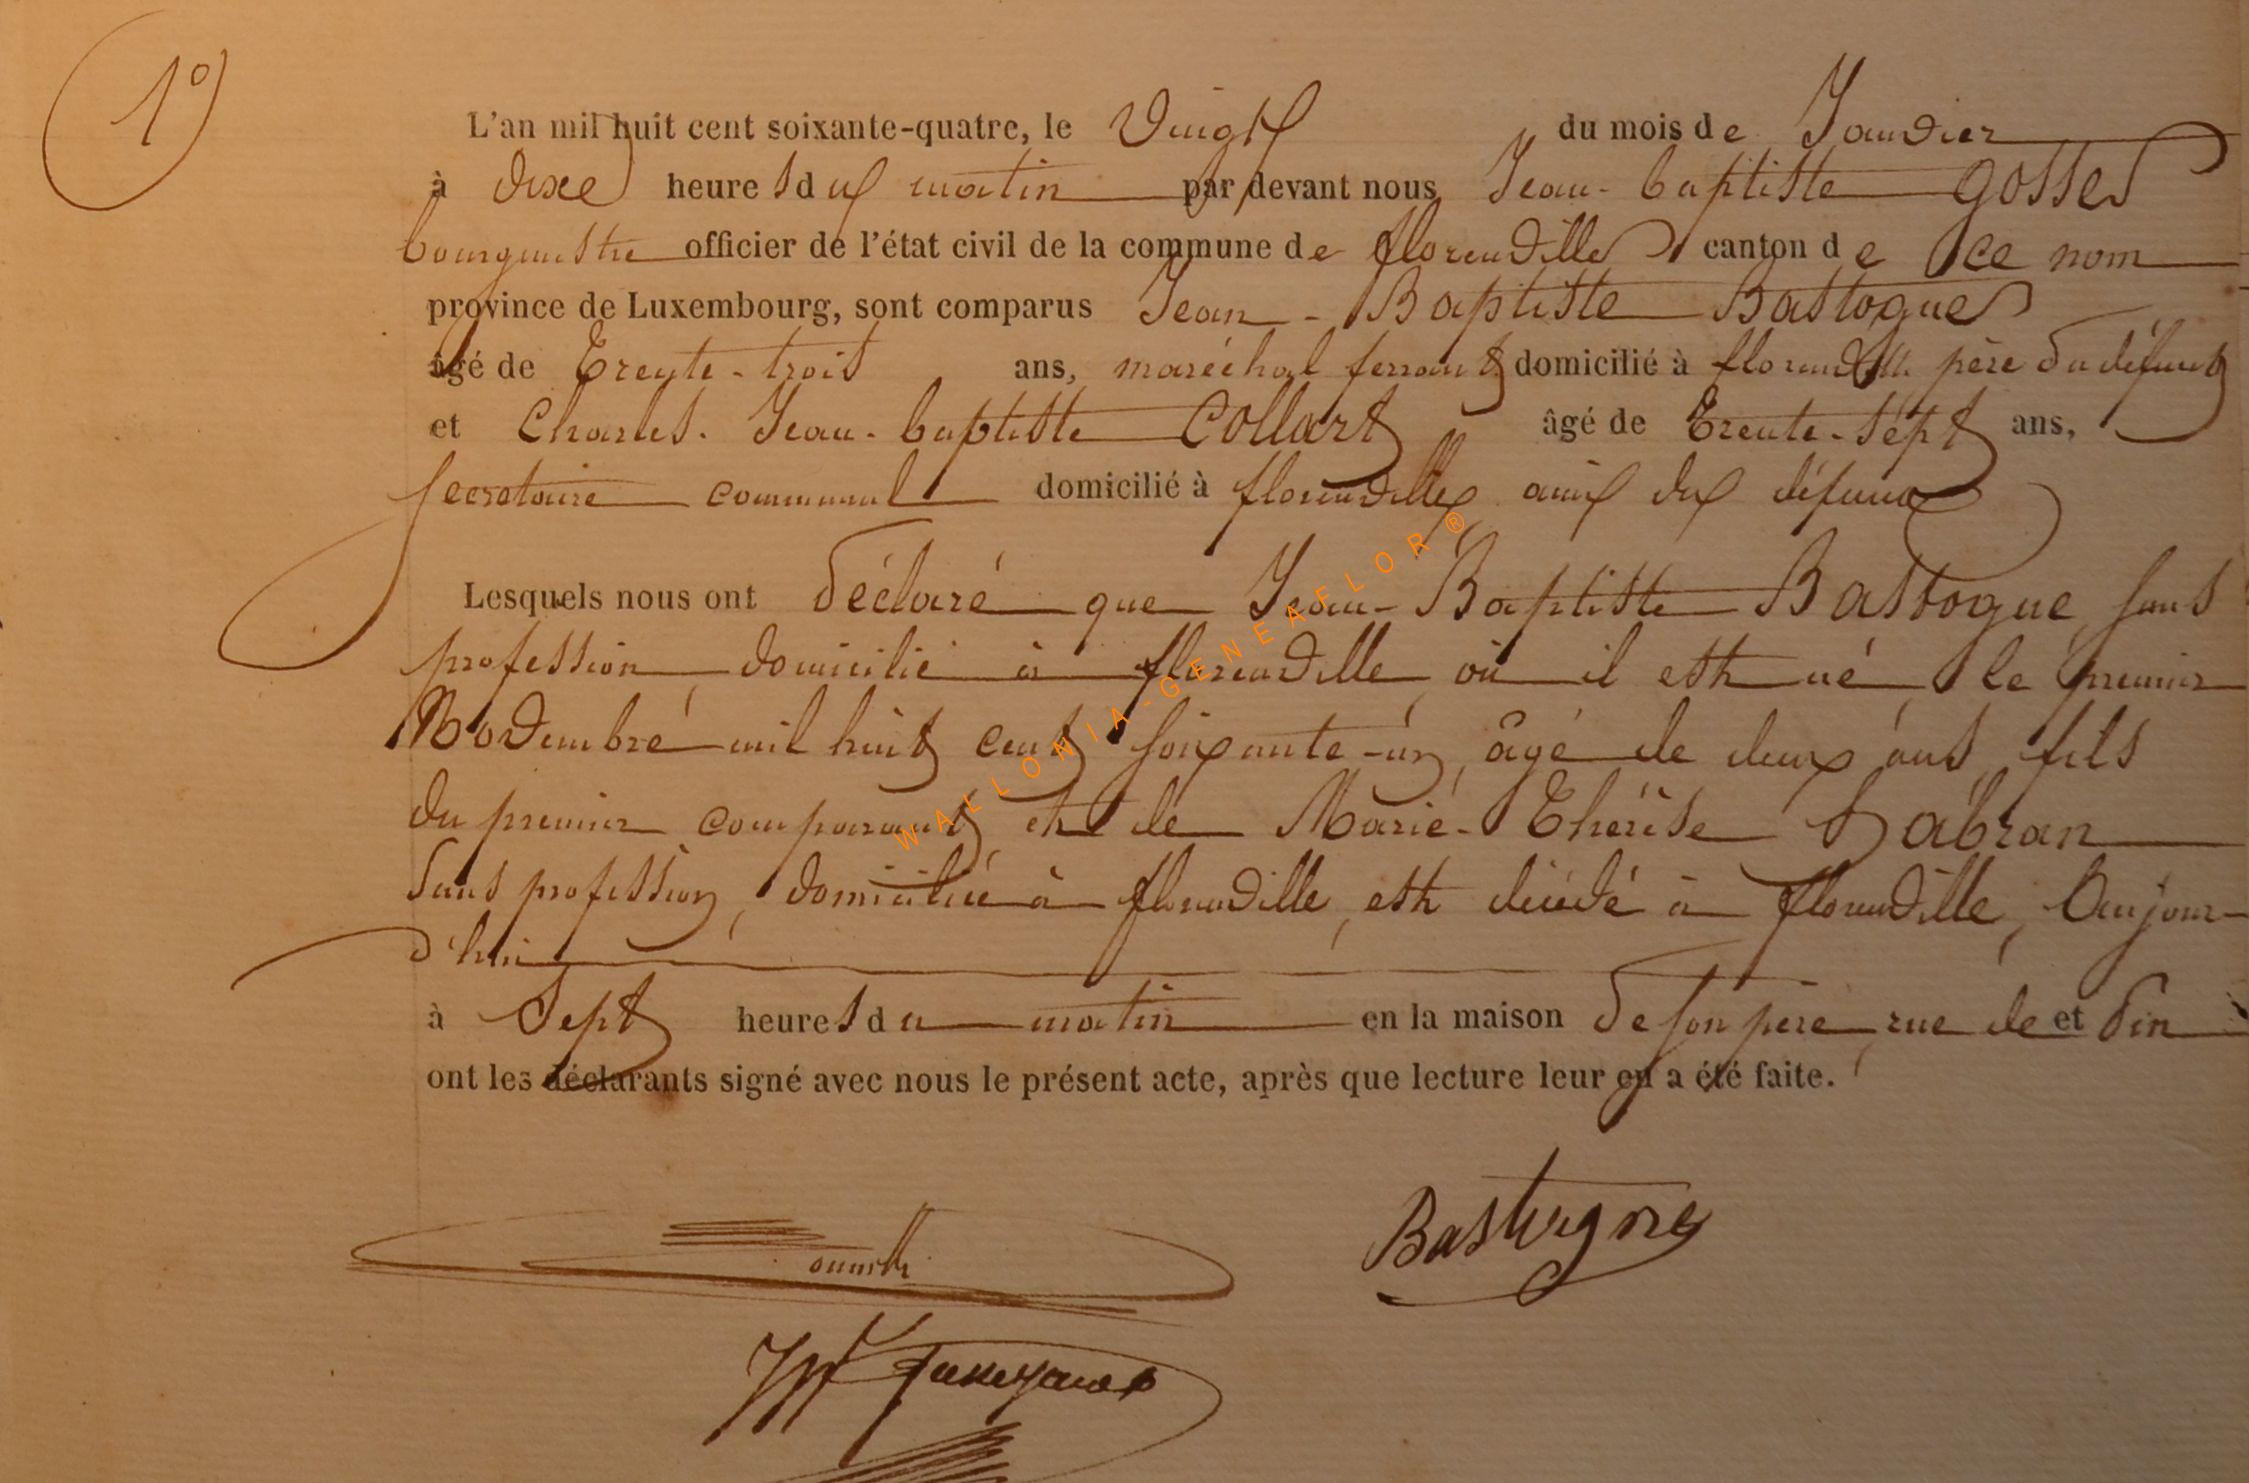 1º
L'an mil huit cent soixante-quatre, le Vingt du mois de Janvier
à dixe heures du matin par devant nous Jean-baptiste Gosse
bourgmestre officier de l'état civil de la commune de florenville canton de ce nom
province de Luxembourg, sont comparus Jean-Baptiste Bastogne
âgé de Trente-trois ans, maréchal ferrant domicilié à florenville père du défunt
et Charles-Jean-baptiste Collart âgé de Trente-sept ans,
secretaire communal domicilié à florenville ami du défunt
Lesquels nous ont déclaré que Jean-Baptiste Bastogne, sans
profession domicilié à florenville où il est né, le premier
Novembre mil huit cent soixante-un, âgé de deux ans, fils
du premier comparant et de Marie-Thérèse Habran
sans profession, domiciliée à florenville, est décédé à florenville, Aujour-
d'hui
à Sept heures du matin en la maison de son père, rue de et Pin
ont les déclarants signé avec nous le présent acte, après que lecture leur en a été faite.
Bastogne
WALLONIA-GENEAFLOR®